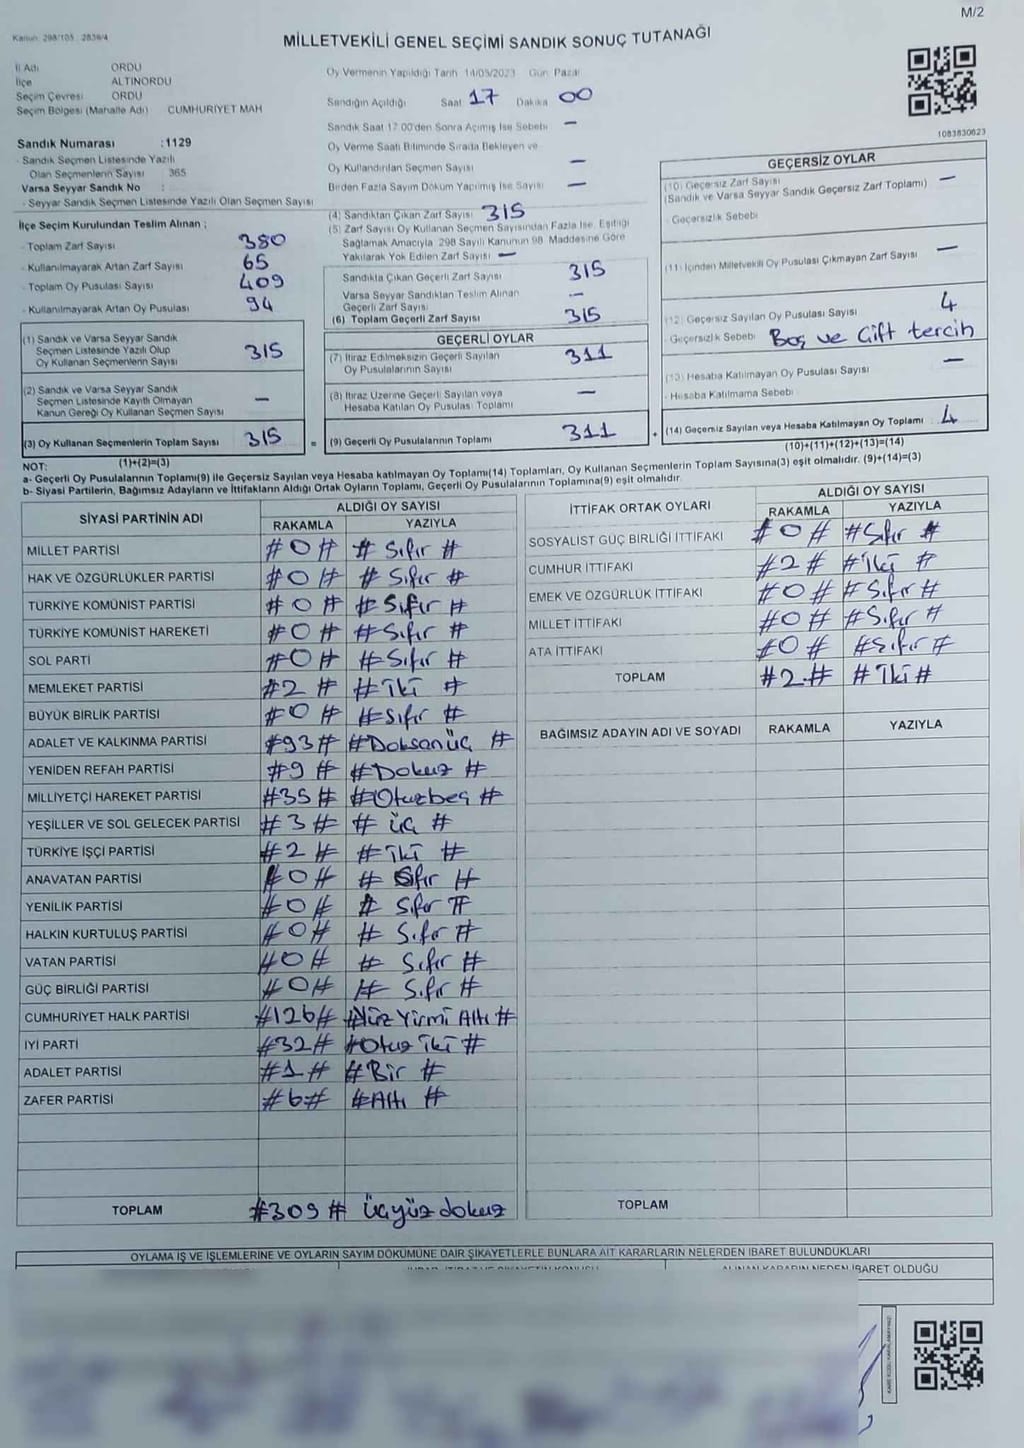 M/2
Kanun: 298/105 2839/4
MİLLETVEKİLİ GENEL SEÇİMİ SANDIK SONUÇ TUTANAĞI
İl Adı ORDU
İlçe ALTINORDU
Seçim Çevresi ORDU
Seçim Bölgesi (Mahalle Adı) CUMHURİYET MAH
Sandık Numarası : 1129
- Sandık Seçmen Listesinde Yazılı
Olan Seçmenlerin Sayısı 365
Varsa Seyyar Sandık No :
- Seyyar Sandık Seçmen Listesinde Yazılı Olan Seçmen Sayısı
İlçe Seçim Kurulundan Teslim Alınan ;
- Toplam Zarf Sayısı 380
- Kullanılmayarak Artan Zarf Sayısı 65
- Toplam Oy Pusulası Sayısı 409
- Kullanılmayarak Artan Oy Pusulası 94
(1) Sandık ve Varsa Seyyar Sandık
Seçmen Listesinde Yazılı Olup
Oy Kullanan Seçmenlerin Sayısı 315
(2) Sandık ve Varsa Seyyar Sandık
Seçmen Listesinde Kayıtlı Olmayan
Kanun Gereği Oy Kullanan Seçmen Sayısı —
(3) Oy Kullanan Seçmenlerin Toplam Sayısı 315
(1)+(2)=(3)
Oy Vermenin Yapıldığı Tarih 14/05/2023 Gün Pazar
Sandığın Açıldığı Saat 17 Dakika 00
Sandık Saat 17:00'den Sonra Açılmış İse Sebebi —
Oy Verme Saati Bitiminde Sırada Bekleyen ve
Oy Kullandırılan Seçmen Sayısı —
Birden Fazla Sayım Döküm Yapılmış İse Sayısı —
(4) Sandıktan Çıkan Zarf Sayısı 315
(5) Zarf Sayısı Oy Kullanan Seçmen Sayısından Fazla İse, Eşitliği
Sağlamak Amacıyla 298 Sayılı Kanunun 98. Maddesine Göre
Yakılarak Yok Edilen Zarf Sayısı —
Sandıkta Çıkan Geçerli Zarf Sayısı 315
Varsa Seyyar Sandıktan Teslim Alınan
Geçerli Zarf Sayısı —
(6) Toplam Geçerli Zarf Sayısı 315
GEÇERLİ OYLAR
(7) İtiraz Edilmeksizin Geçerli Sayılan
Oy Pusulalarının Sayısı 311
(8) İtiraz Üzerine Geçerli Sayılan veya
Hesaba Katılan Oy Pusulası Toplamı —
= (9) Geçerli Oy Pusulalarının Toplamı 311
1083830623
GEÇERSİZ OYLAR
(10) Geçersiz Zarf Sayısı —
(Sandık ve Varsa Seyyar Sandık Geçersiz Zarf Toplamı)
- Geçersizlik Sebebi
(11) İçinden Milletvekili Oy Pusulası Çıkmayan Zarf Sayısı —
(12) Geçersiz Sayılan Oy Pusulası Sayısı 4
- Geçersizlik Sebebi Boş ve Çift tercih
(13) Hesaba Katılmayan Oy Pusulası Sayısı —
- Hesaba Katılmama Sebebi
+ (14) Geçersiz Sayılan veya Hesaba Katılmayan Oy Toplamı : 4
(10)+(11)+(12)+(13)=(14)
NOT:
a- Geçerli Oy Pusulalarının Toplamı(9) ile Geçersiz Sayılan veya Hesaba katılmayan Oy Toplamı(14) Toplamları, Oy Kullanan Seçmenlerin Toplam Sayısına(3) eşit olmalıdır. (9)+(14)=(3)
b- Siyasi Partilerin, Bağımsız Adayların ve İttifakların Aldığı Ortak Oyların Toplamı, Geçerli Oy Pusulalarının Toplamına(9) eşit olmalıdır.
SİYASİ PARTİNİN ADI ALDIĞI OY SAYISI
RAKAMLA YAZIYLA
MİLLET PARTİSİ #0# # Sıfır #
HAK VE ÖZGÜRLÜKLER PARTİSİ #0# # Sıfır #
TÜRKİYE KOMÜNİST PARTİSİ #0# # Sıfır #
TÜRKİYE KOMÜNİST HAREKETİ #0# # Sıfır #
SOL PARTİ #0# # Sıfır #
MEMLEKET PARTİSİ #2# # iki #
BÜYÜK BİRLİK PARTİSİ #0# # Sıfır #
ADALET VE KALKINMA PARTİSİ #93# #Doksanüç #
YENİDEN REFAH PARTİSİ #9# #Dokuz #
MİLLİYETÇİ HAREKET PARTİSİ #35# #Otuzbeş #
YEŞİLLER VE SOL GELECEK PARTİSİ #3# # üç #
TÜRKİYE İŞÇİ PARTİSİ #2# # iki #
ANAVATAN PARTİSİ #0# # Sıfır #
YENİLİK PARTİSİ #0# # Sıfır #
HALKIN KURTULUŞ PARTİSİ #0# # Sıfır #
VATAN PARTİSİ #0# # Sıfır #
GÜÇ BİRLİĞİ PARTİSİ #0# # Sıfır #
CUMHURİYET HALK PARTİSİ #126# #Yüz Yirmi Altı #
İYİ PARTİ #32# #Otuz iki #
ADALET PARTİSİ #1# #Bir #
ZAFER PARTİSİ #6# #Altı #
TOPLAM #309# üçyüz dokuz
İTTİFAK ORTAK OYLARI ALDIĞI OY SAYISI
RAKAMLA YAZIYLA
SOSYALİST GÜÇ BİRLİĞİ İTTİFAKI #0# #Sıfır #
CUMHUR İTTİFAKI #2# #iki #
EMEK VE ÖZGÜRLÜK İTTİFAKI #0# #Sıfır #
MİLLET İTTİFAKI #0# #Sıfır #
ATA İTTİFAKI #0# #Sıfır #
TOPLAM #2# #iki#
BAĞIMSIZ ADAYIN ADI VE SOYADI RAKAMLA YAZIYLA
TOPLAM
OYLAMA İŞ VE İŞLEMLERİNE VE OYLARIN SAYIM DÖKÜMÜNE DAİR ŞİKAYETLERLE BUNLARA AİT KARARLARIN NELERDEN İBARET BULUNDUKLARI
ALINAN KARARIN NEDEN İBARET OLDUĞU